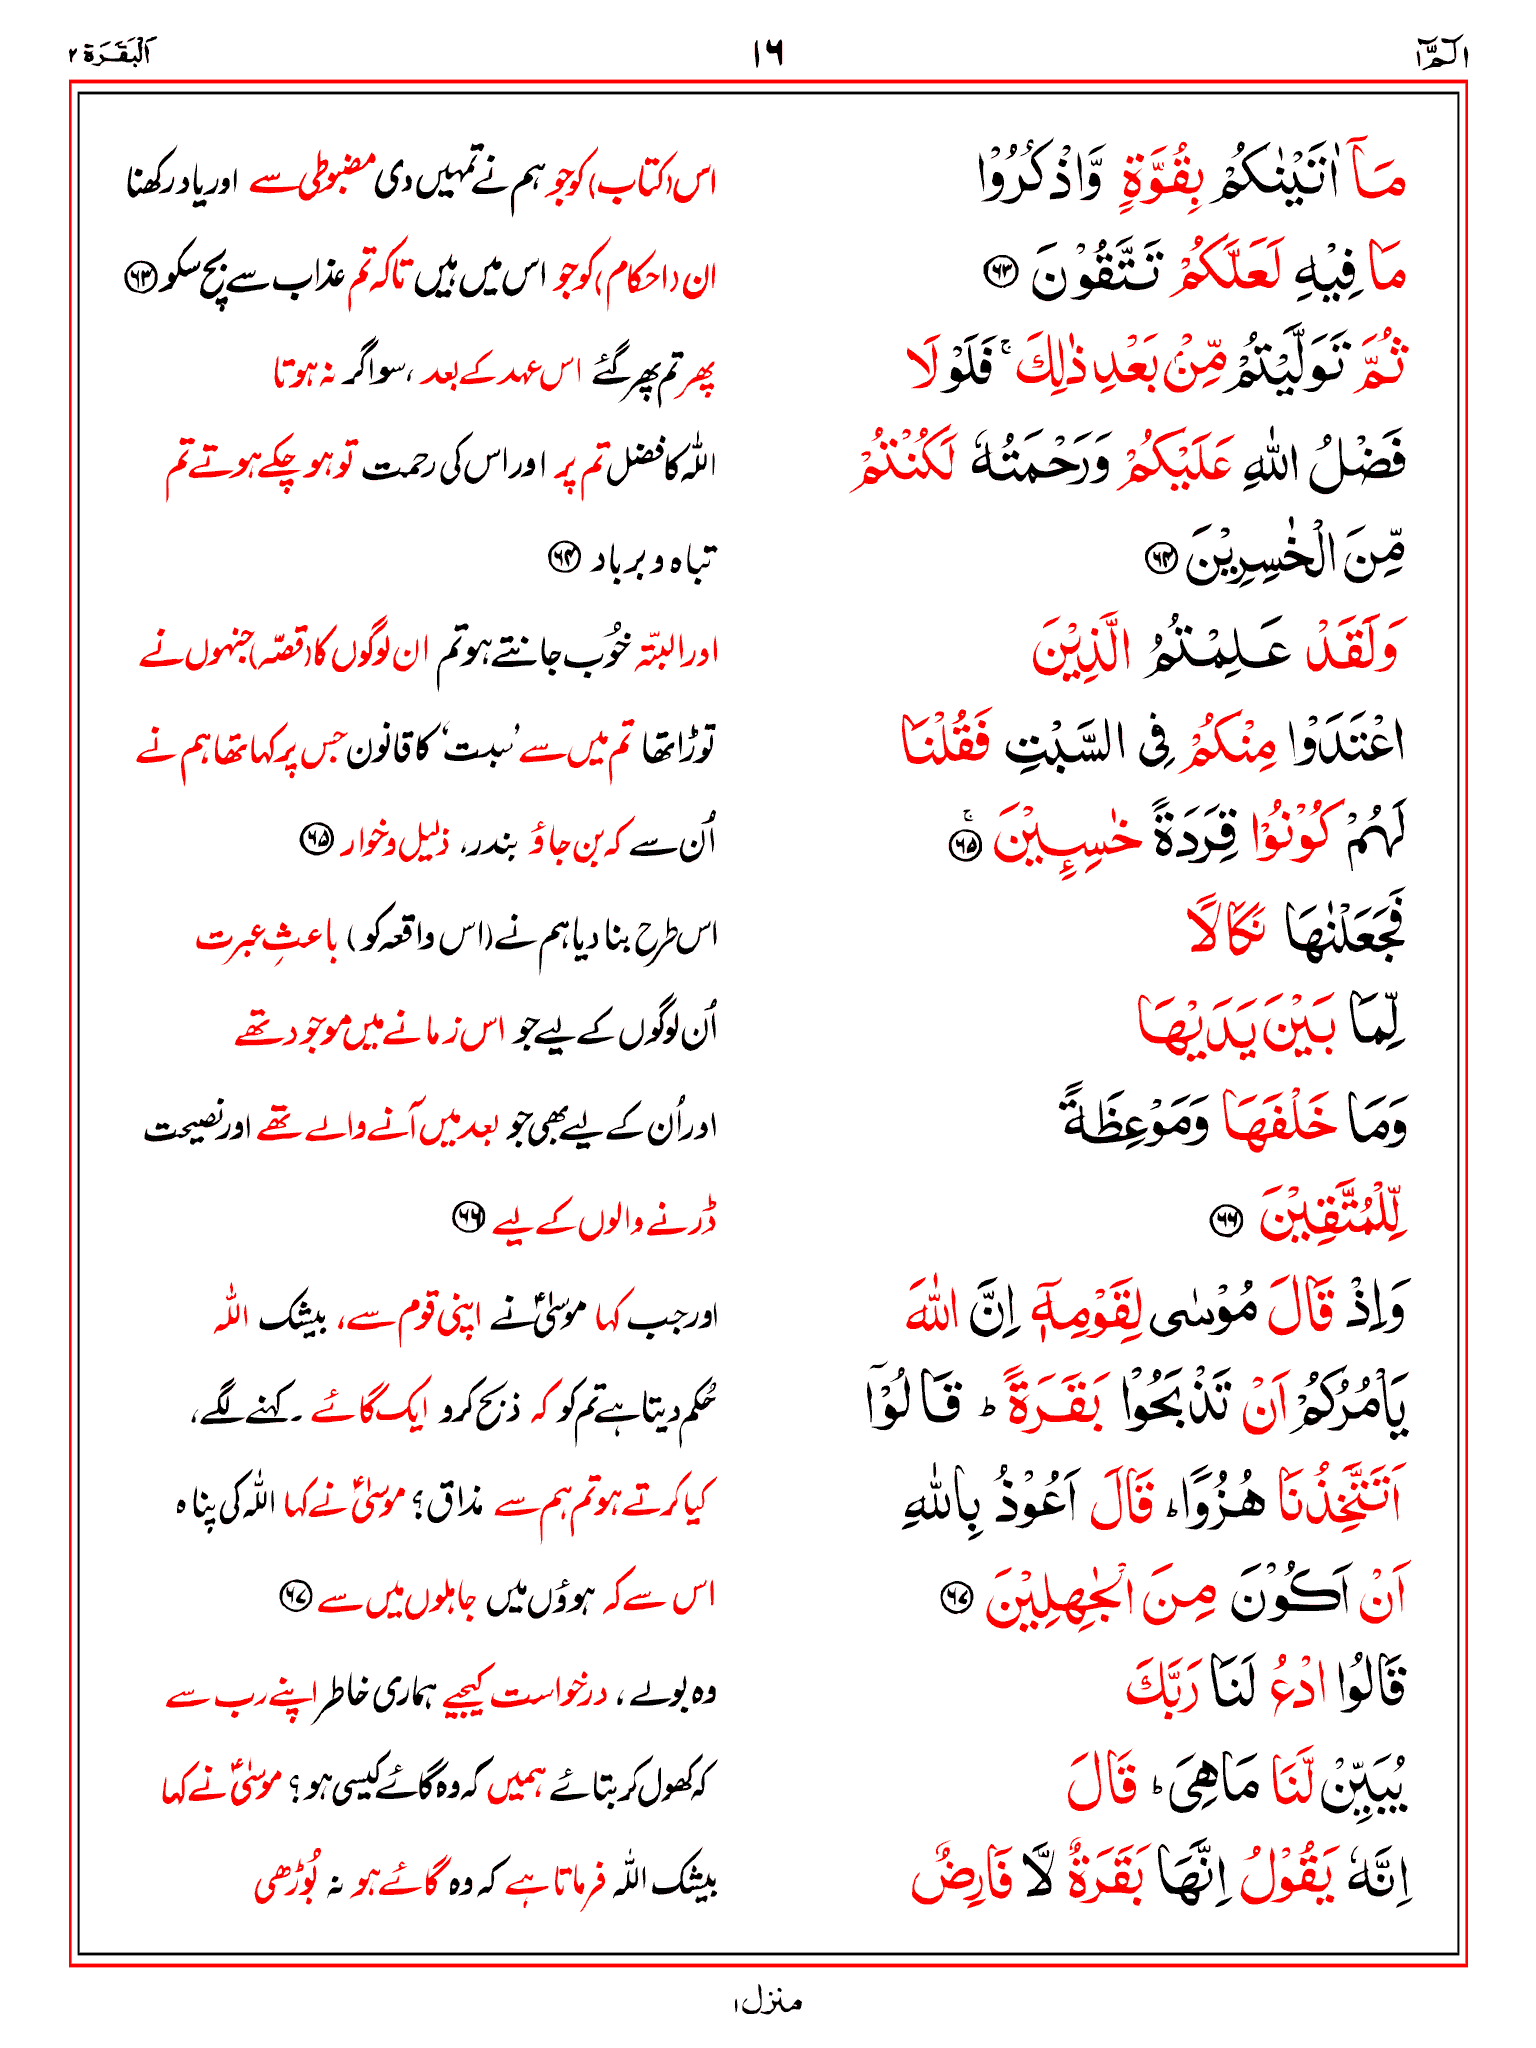 الٓمّٓ ۱
۱۶
اَلْبَقَرَة ۲
مَآ اٰتَيْنٰكُمْ بِقُوَّةٍ وَّاذْكُرُوْا
اس (کتاب) کو جو ہم نے تمہیں دی مضبوطی سے اور یاد رکھنا
مَا فِيْهِ لَعَلَّكُمْ تَتَّقُوْنَ ۶۳
ان (احکام) کو جو اس میں ہیں تاکہ تم عذاب سے بچ سکو ۶۳
ثُمَّ تَوَلَّيْتُمْ مِّنْۢ بَعْدِ ذٰلِكَ ۚ فَلَوْ لَا
پھر تم پھر گئے اس عہد کے بعد، سو اگر نہ ہوتا
فَضْلُ اللّٰهِ عَلَيْكُمْ وَرَحْمَتُهٗ لَكُنْتُمْ
اللہ کا فضل تم پر اور اس کی رحمت تو ہو چکے ہوتے تم
مِّنَ الْخٰسِرِيْنَ ۶۴
تباہ و برباد ۶۴
وَلَقَدْ عَلِمْتُمُ الَّذِيْنَ
اور البتّہ خُوب جانتے ہو تم ان لوگوں کا (قصّہ) جنہوں نے
اعْتَدَوْا مِنْكُمْ فِى السَّبْتِ فَقُلْنَا
توڑا تھا تم میں سے ’سبت‘ کا قانون جس پر کہا تھا ہم نے
لَهُمْ كُوْنُوْا قِرَدَةً خٰسِـِٕيْنَ ۚ ۶۵
اُن سے کہ بن جاؤ بندر، ذلیل و خوار ۶۵
فَجَعَلْنٰهَا نَكَالًا
اس طرح بنا دیا ہم نے (اس واقعہ کو) باعثِ عبرت
لِّمَا بَيْنَ يَدَيْهَا
اُن لوگوں کے لیے جو اس زمانے میں موجود تھے
وَمَا خَلْفَهَا وَمَوْعِظَةً
اور اُن کے لیے بھی جو بعد میں آنے والے تھے اور نصیحت
لِّلْمُتَّقِيْنَ ۶۶
ڈرنے والوں کے لیے ۶۶
وَاِذْ قَالَ مُوْسٰى لِقَوْمِهٖٓ اِنَّ اللّٰهَ
اور جب کہا موسٰیؑ نے اپنی قوم سے، بیشک اللہ
يَاْمُرُكُمْ اَنْ تَذْبَحُوْا بَقَرَةً ؕ قَالُوْٓا
حُکم دیتا ہے تم کو کہ ذبح کرو ایک گائے۔ کہنے لگے،
اَتَتَّخِذُنَا هُزُوًا ؕ قَالَ اَعُوْذُ بِاللّٰهِ
کیا کرتے ہو تم ہم سے مذاق؟ موسٰیؑ نے کہا اللہ کی پناہ
اَنْ اَكُوْنَ مِنَ الْجٰهِلِيْنَ ۶۷
اس سے کہ ہوؤں میں جاہلوں میں سے ۶۷
قَالُوا ادْعُ لَنَا رَبَّكَ
وہ بولے، درخواست کیجیے ہماری خاطر اپنے رب سے
يُبَيِّنْ لَّنَا مَا هِىَ ؕ قَالَ
کہ کھول کر بتائے ہمیں کہ وہ گائے کیسی ہو؟ موسٰیؑ نے کہا
اِنَّهٗ يَقُوْلُ اِنَّهَا بَقَرَةٌ لَّا فَارِضٌ
بیشک اللہ فرماتا ہے کہ وہ گائے ہو نہ بُوڑھی
منزل ۱